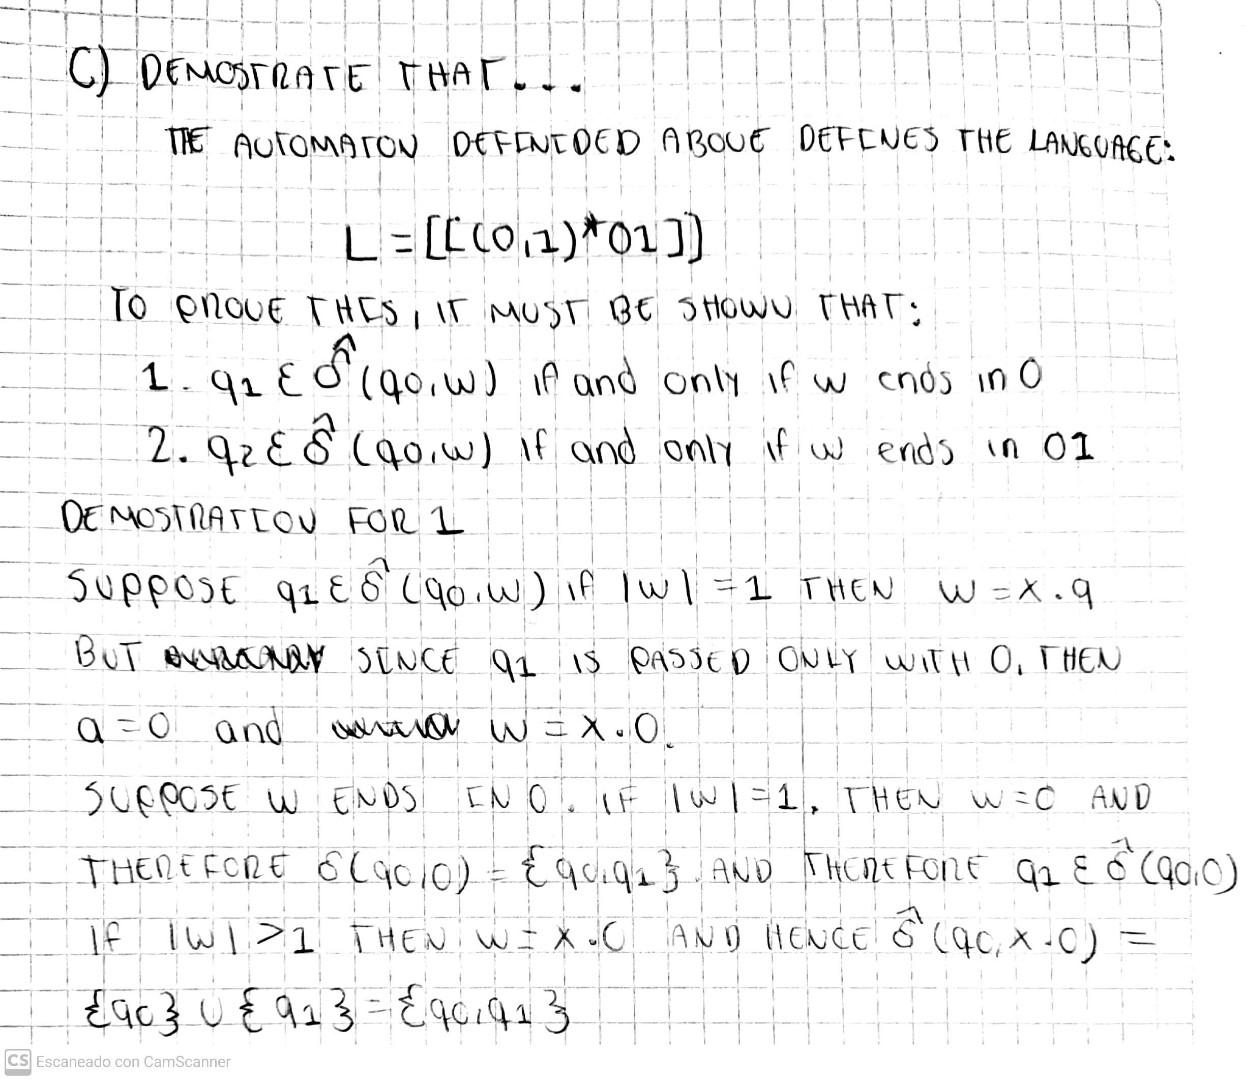 C) DEMOSTRATE THAT...
THE AUTOMATON DEFINIDED ABOVE DEFINES THE LANGUAGE:
L = [[(0,1)*01]]
TO PROVE THIS, IT MUST BE SHOWN THAT:
1. q1 ε δ̂ (q0,w) if and only if w ends in 0
2. q2 ε δ̂ (q0,w) if and only if w ends in 01
DEMOSTRATION FOR 1
SUPPOSE q1 ε δ̂ (q0,w) if |w| = 1 THEN w = x.q
BUT SINCE q1 IS PASSED ONLY WITH 0, THEN
a = 0 and w = x.0.
SUPPOSE w ENDS IN 0. IF |w| = 1, THEN w = 0 AND
THEREFORE δ(q0,0) = {q0,q1} AND THEREFORE q1 ε δ̂ (q0,0)
If |w| > 1 THEN w = x.0 AND HENCE δ̂ (q0, x.0) =
{q0} ∪ {q1} = {q0,q1}
CS Escaneado con CamScanner